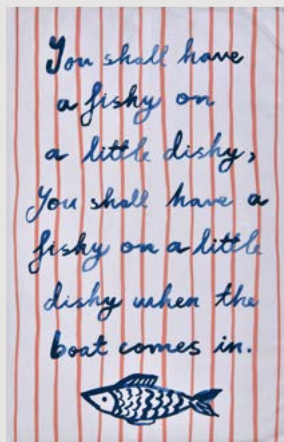 You shall have
a fishy on
a little dishy,
You shall have a
fishy on a little
dishy when the
boat comes in.